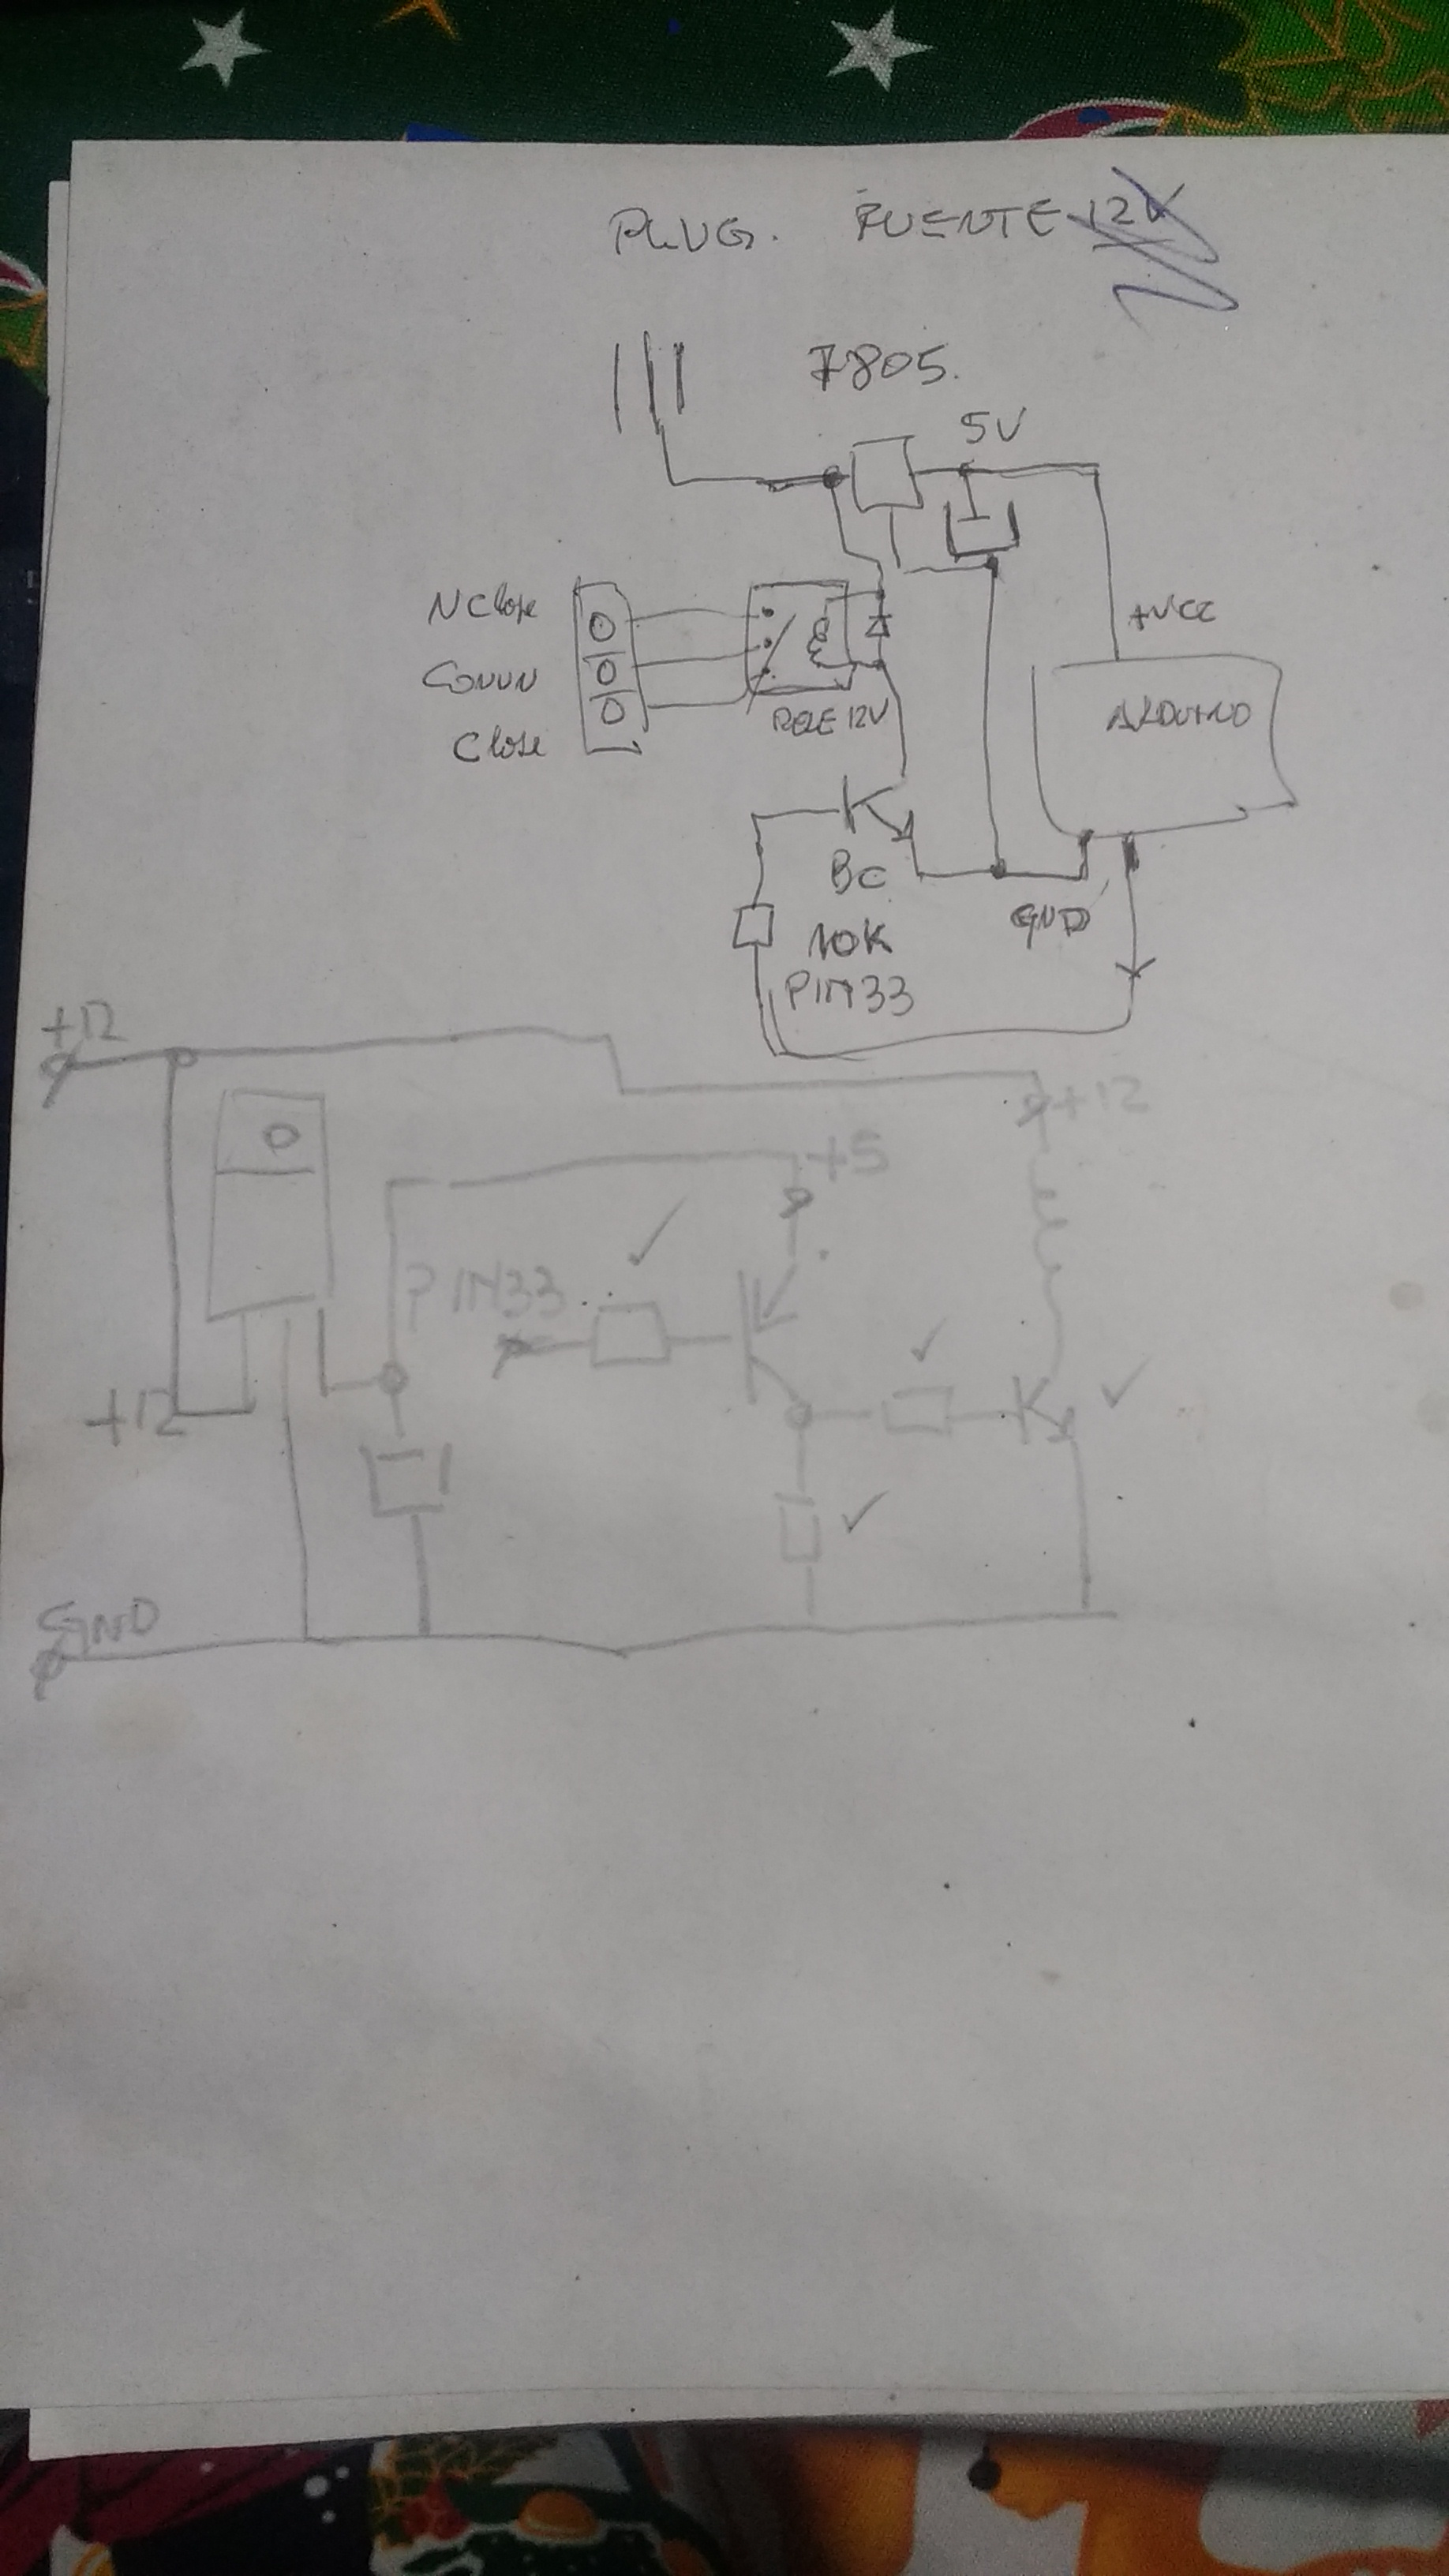 PLUG. FUENTE 12V
7805.
5V
N Close
Comun
Close
RELE 12V
+VCC
ARDUINO
BC
10K
GND
PIN33
+12
+12
+5
PIN33
+12
GND